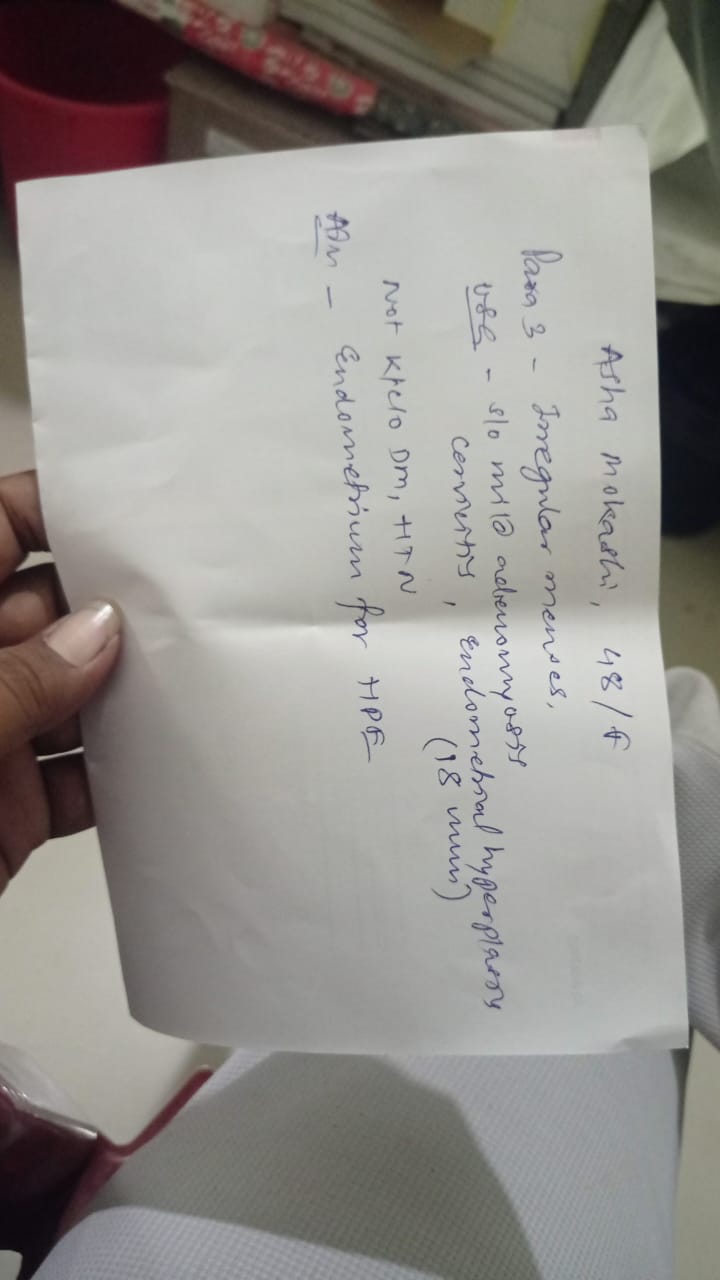 Asha Mokashi, 48/F
Para 3 - Irregular menses,
USG - s/o mild adenomyosis
cervicitis, Endometrial hyperplasia
(18 mm)
Not k/c/o DM, HTN
Adv - Endometrium for HPE